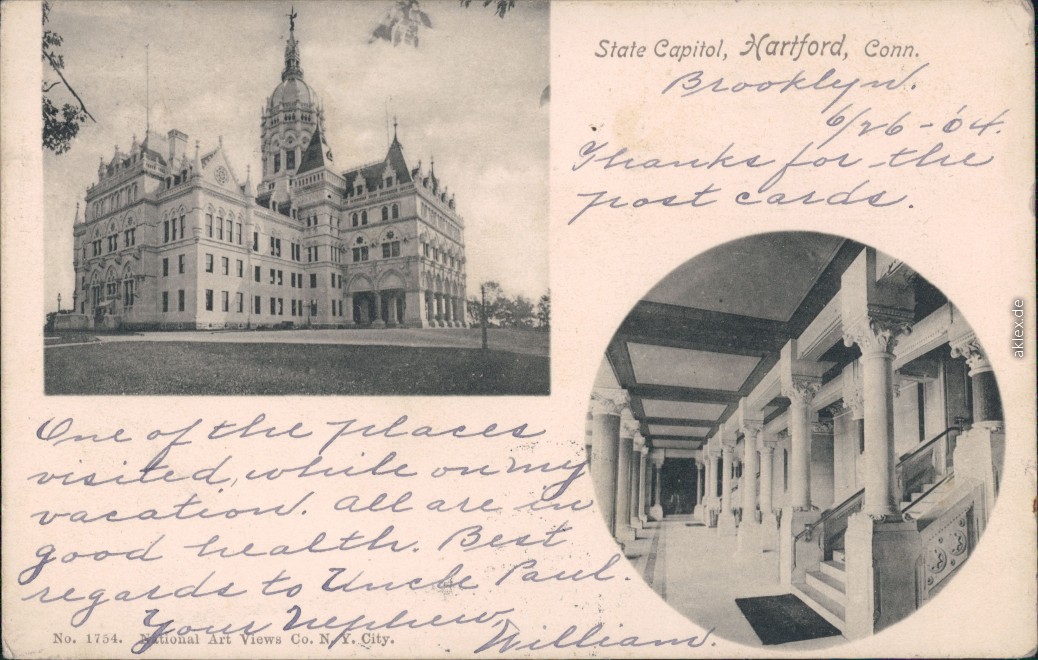 State Capitol, Hartford, Conn.
Brooklyn.
6/26-'04.
Thanks for the
post cards.
One of the places
visited, while on my
vacation. All are in
good health. Best
regards to Uncle Paul.
Your Nephew,
William.
No. 1754. National Art Views Co. N. Y. City.
aklex.de